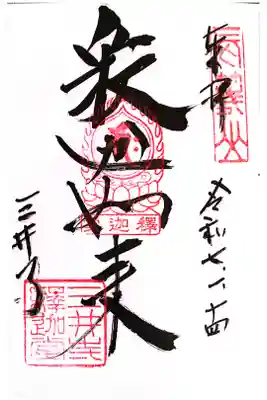 奉拝
令和七、二、十四
釈迦如来
釋迦
三井寺
三井寺
釋迦堂